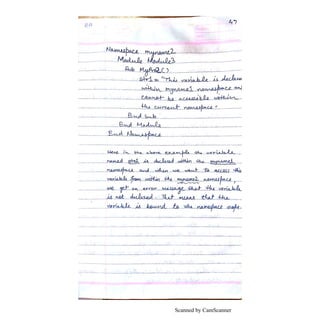 47
Namespace myname2
Module Module3
Sub MySub2()
str1 = "This variable is declare
within myname1 namespace and
cannot be accessible within
the current namespace.
End Sub
End Module
End Namespace
Here in the above example the variable
named str1 is declared within the myname1
namespace and when we want to access this
variable from within the myname2 namespace,
we get an error message that the variable
is not declared. That means that the
variable is bound to the namespace scope.
Scanned by CamScanner